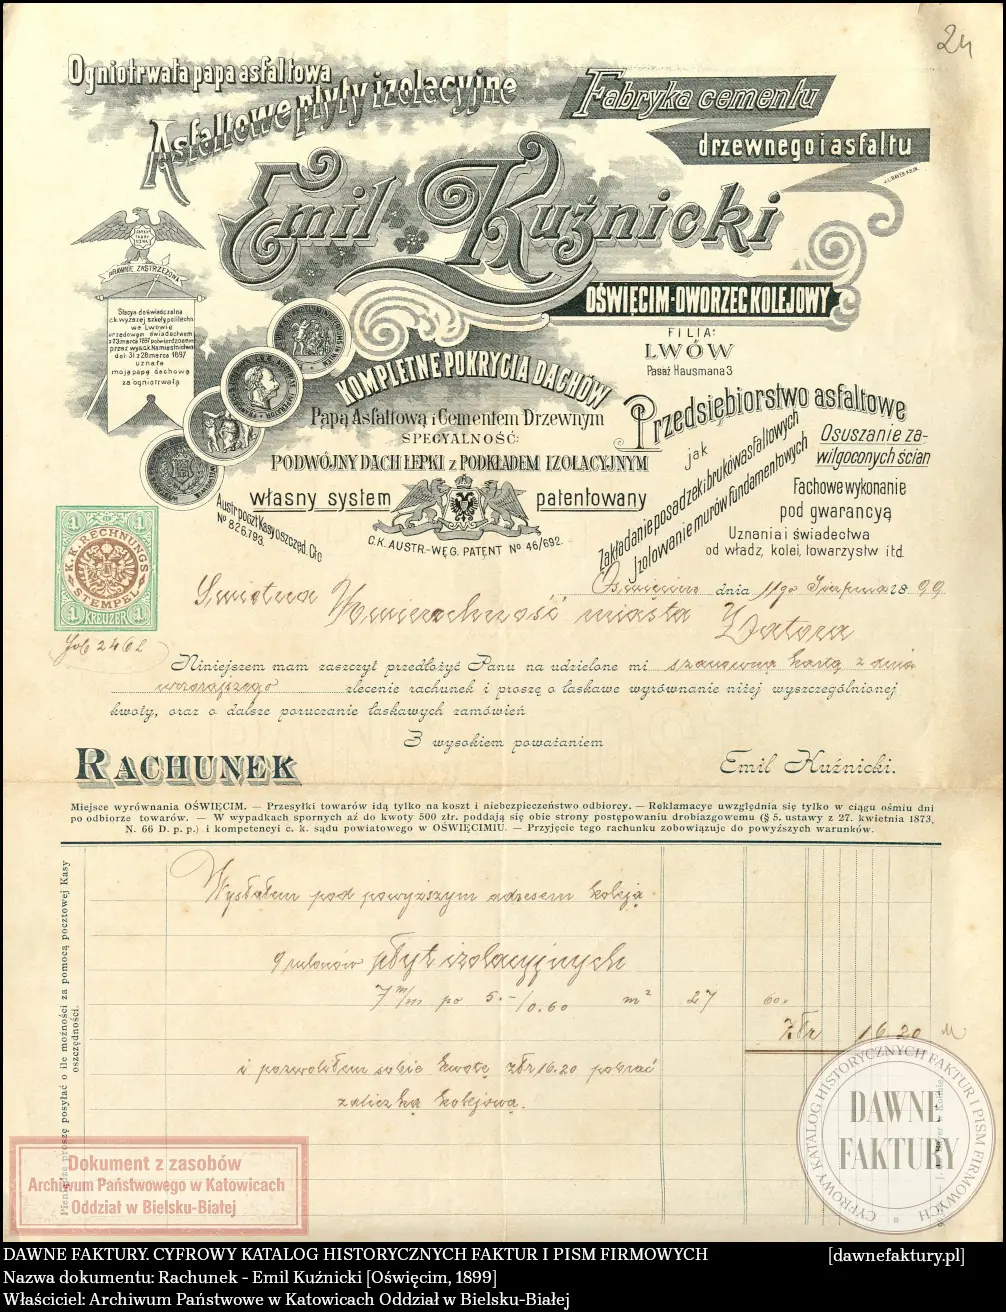 24
Ogniotrwała papa asfaltowa
Asfaltowe płyty izolacyjne
Fabryka cementu
drzewnego i asfaltu
Emil Kuźnicki
OŚWIĘCIM-DWORZEC KOLEJOWY
FILIA:
LWÓW
Pasaż Hausmana 3
PRAWNIE ZASTRZEŻONA
Stacya doświadczalna
c.k. wyższej szkoły politechn.
we Lwowie
urzędowem świadectwem
z 23 marca 1897 potwierdzonem
przez wys. c.k. Namiestnictwo
dat. 31 z 28 marca 1897
uznała
moją papę dachową
za ogniotrwałą
KOMPLETNE POKRYCIA DACHÓW
Papą Asfaltową i Cementem Drzewnym
SPECYALNOŚĆ:
PODWÓJNY DACH LEPKI z PODKŁADEM IZOLACYJNYM
własny system patentowany
C.K. AUSTR.-WĘG. PATENT No 46/692.
Austr. poczt. Kasy oszczęd. Cto
No 826.793.
Przedsiębiorstwo asfaltowe
jak
Zakładanie posadzek i bruków asfaltowych
Izolowanie murów fundamentowych
Osuszanie za-
wilgoconych ścian
Fachowe wykonanie
pod gwarancyą
Uznania i świadectwa
od władz, kolei, towarzystw itd.
K.K. RECHNUNGS
STEMPEL
1 KREUZER 1
Oświęcim dnia 11go Sierpnia 1899
Świetna Zwierzchność miasta Zatora
Niniejszem mam zaszczyt przedłożyć Panu na udzielone mi szanowną kartą z dnia
wczorajszego zlecenie rachunek i proszę o łaskawe wyrównanie niżej wyszczególnionej
kwoty, oraz o dalsze poruczanie łaskawych zamówień
Z wysokiem poważaniem
RACHUNEK
Emil Kuźnicki.
Miejsce wyrównania OŚWIĘCIM. — Przesyłki towarów idą tylko na koszt i niebezpieczeństwo odbiorcy. — Reklamacye uwzględnia się tylko w ciągu ośmiu dni
po odbiorze towarów. — W wypadkach spornych aż do kwoty 500 złr. poddają się obie strony postępowaniu drobiazgowemu (§ 5. ustawy z 27. kwietnia 1873,
N. 66 D. p. p.) i kompetencyi c. k. sądu powiatowego w OŚWIĘCIMIU. — Przyjęcie tego rachunku zobowiązuje do powyższych warunków.
Pieniądze proszę posyłać o ile możności za pomocą pocztowej Kasy
oszczędności.
Wysłałem pod powyższym adresem koleją
9 rulonów płyt izolacyjnych
7 m/m po 5.-/0.60 m2 27 60.
Złr 16.20
i pozwoliłem sobie kwotę złr. 16.20 pobrać
zaliczką kolejową.
Dokument z zasobów
Archiwum Państwowego w Katowicach
Oddział w Bielsku-Białej
CYFROWY KATALOG HISTORYCZNYCH FAKTUR I PISM FIRMOWYCH
DAWNE
FAKTURY
DAWNE FAKTURY. CYFROWY KATALOG HISTORYCZNYCH FAKTUR I PISM FIRMOWYCH [dawnefaktury.pl]
Nazwa dokumentu: Rachunek - Emil Kuźnicki [Oświęcim, 1899]
Właściciel: Archiwum Państwowe w Katowicach Oddział w Bielsku-Białej